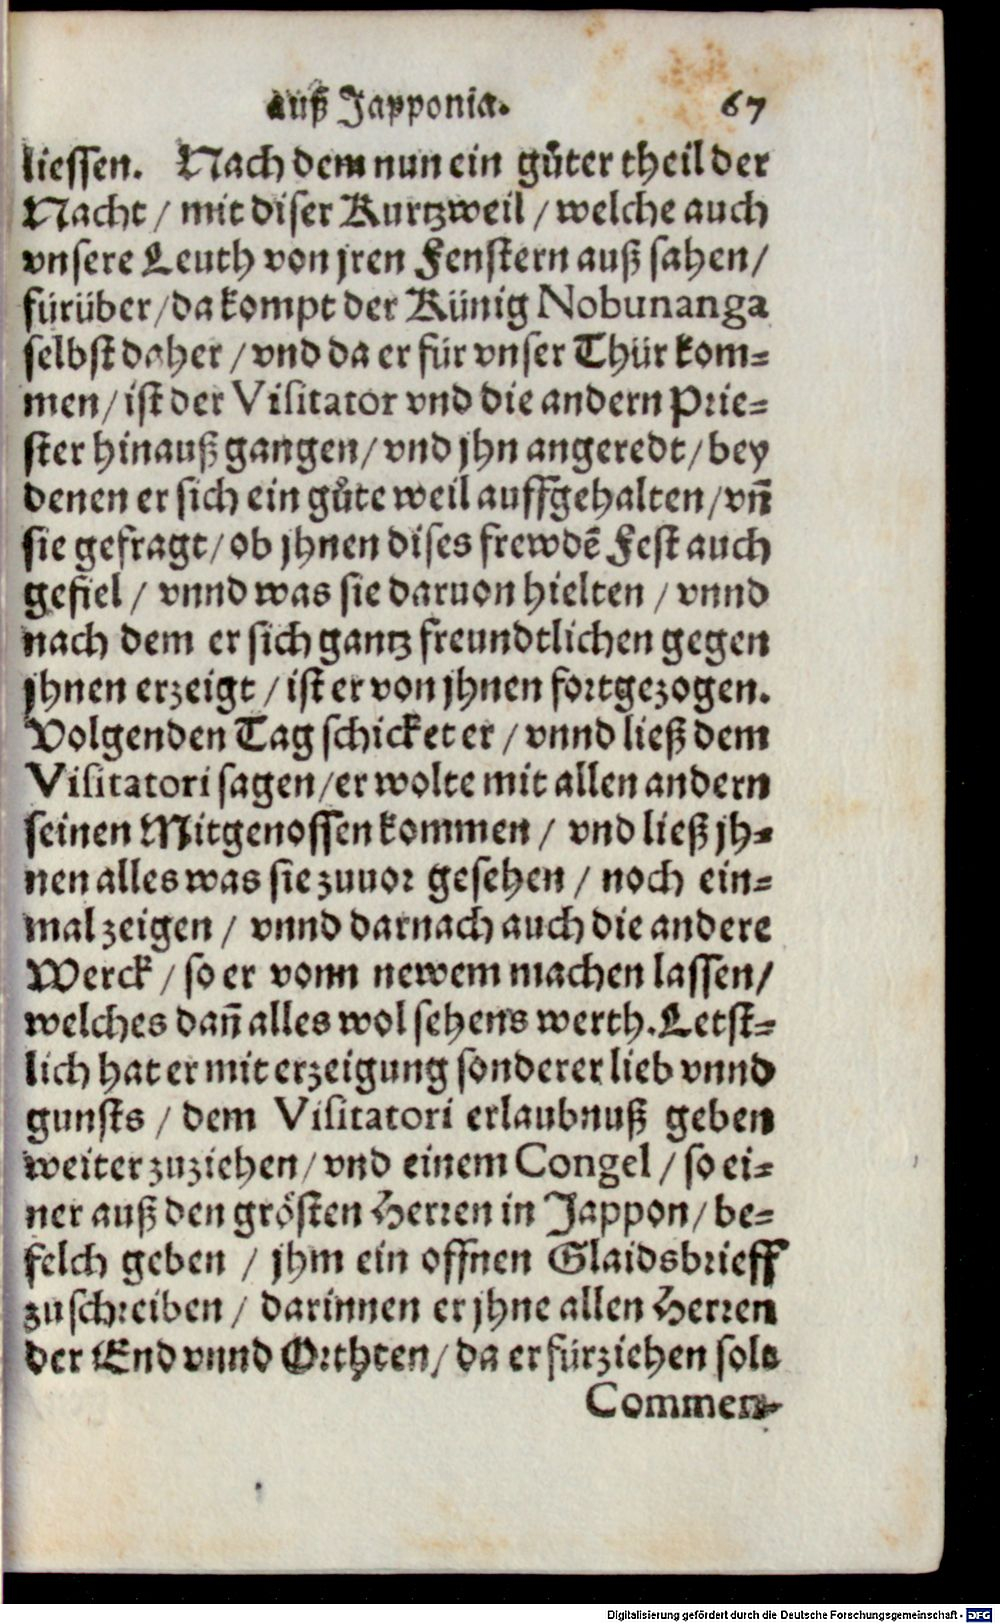 auß Japponia. 67
liessen. Nach dem nun ein gůter theil der
Nacht / mit diser Kurtzweil / welche auch
vnsere Leuth von jren Fenstern auß sahen /
fürüber / da kompt der Künig Nobunanga
selbst daher / vnd da er für vnser Thür kom⸗
men / ist der Visitator vnd die andern Prie⸗
ster hinauß gangen / vnd jhn angeredt / bey
denen er sich ein gůte weil auffgehalten / vn̄
sie gefragt / ob jhnen dises frewdē Fest auch
gefiel / vnnd was sie daruon hielten / vnnd
nach dem er sich gantz freundtlichen gegen
jhnen erzeigt / ist er von jhnen fortgezogen.
Volgenden Tag schicket er / vnnd ließ dem
Visitatori sagen / er wolte mit allen andern
seinen Mitgenossen kommen / vnd ließ jh⸗
nen alles was sie zuuor gesehen / noch ein⸗
mal zeigen / vnnd darnach auch die andere
Werck / so er vonn newem machen lassen /
welches dan̄ alles wol sehens werth. Letst⸗
lich hat er mit erzeigung sonderer lieb vnnd
gunsts / dem Visitatori erlaubnuß geben
weiter zuziehen / vnd einem Congel / so ei⸗
ner auß den grösten Herren in Jappon / be⸗
felch geben / jhm ein offnen Glaidsbrieff
zuschreiben / darinnen er jhne allen Herren
der End vnnd Orthten / da er fürziehen sols
Commen⸗
Digitalisierung gefördert durch die Deutsche Forschungsgemeinschaft - DFG